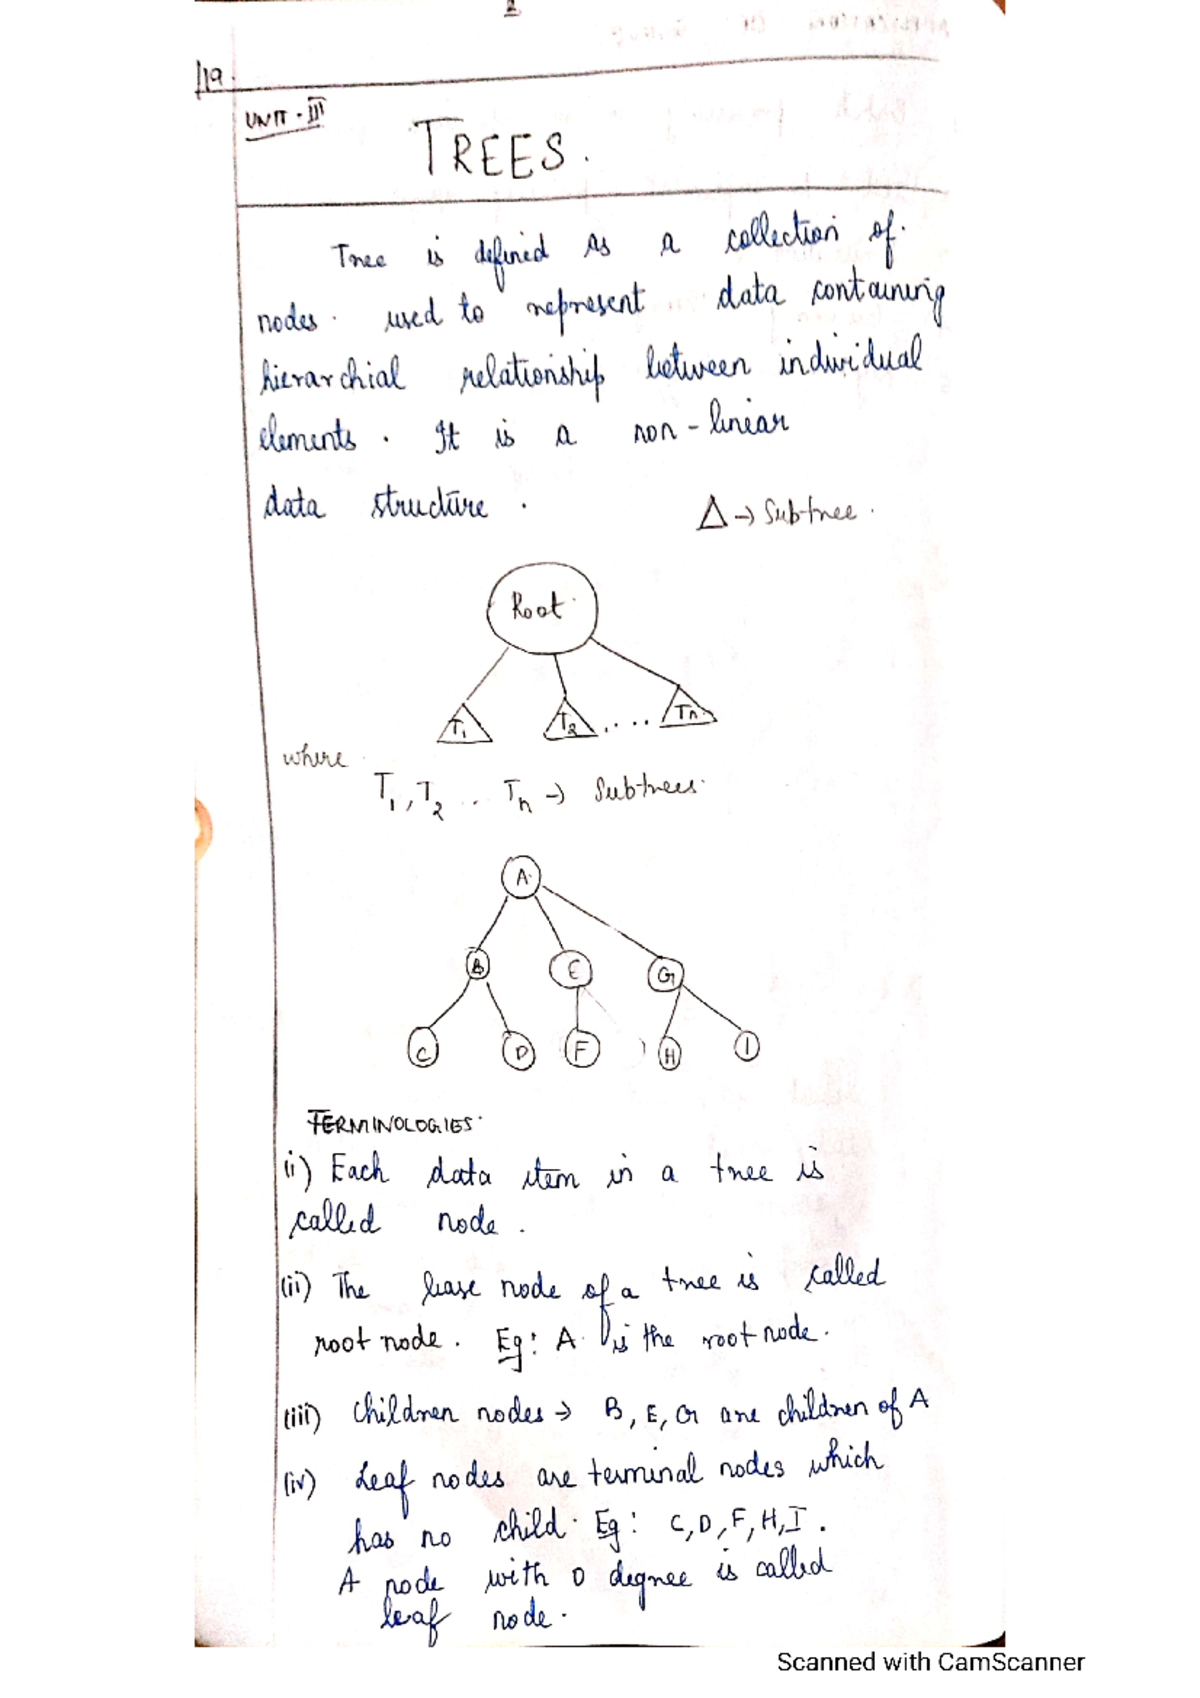 2
/19
UNIT - III
TREES.
Tree is defined as a collection of
nodes used to represent data containing
hierarchial relationship between individual
elements. It is a non-linear
data structure.
Δ → Subtree.
Root
T1 T2 .... Tn
where
T1, T2 .. Tn → Subtrees.
A
B E G
C D F H I
TERMINOLOGIES
(i) Each data item in a tree is
called node.
(ii) The base node of a tree is called
root node. Eg: A is the root node.
(iii) Children nodes → B, E, G are children of A
(iv) Leaf nodes are terminal nodes which
has no child. Eg: C, D, F, H, I.
A node with 0 degree is called
leaf node.
Scanned with CamScanner